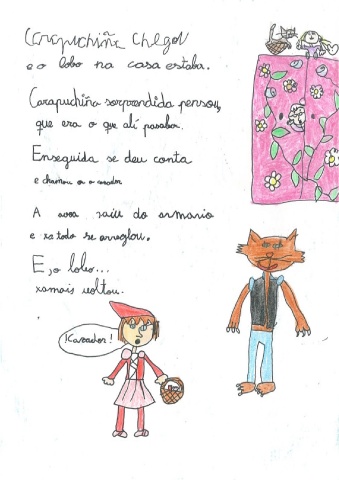 Carapuchiña chegou
e o lobo na casa estaba.
Carapuchiña sorprendida pensou,
que era o que alí pasaba.
Enseguida se deu conta
e chamou ao cazador
A avoa saiu do armario
e xa todo se arroglou.
E, o lobo...
xamais voltou.
¡Cazador!